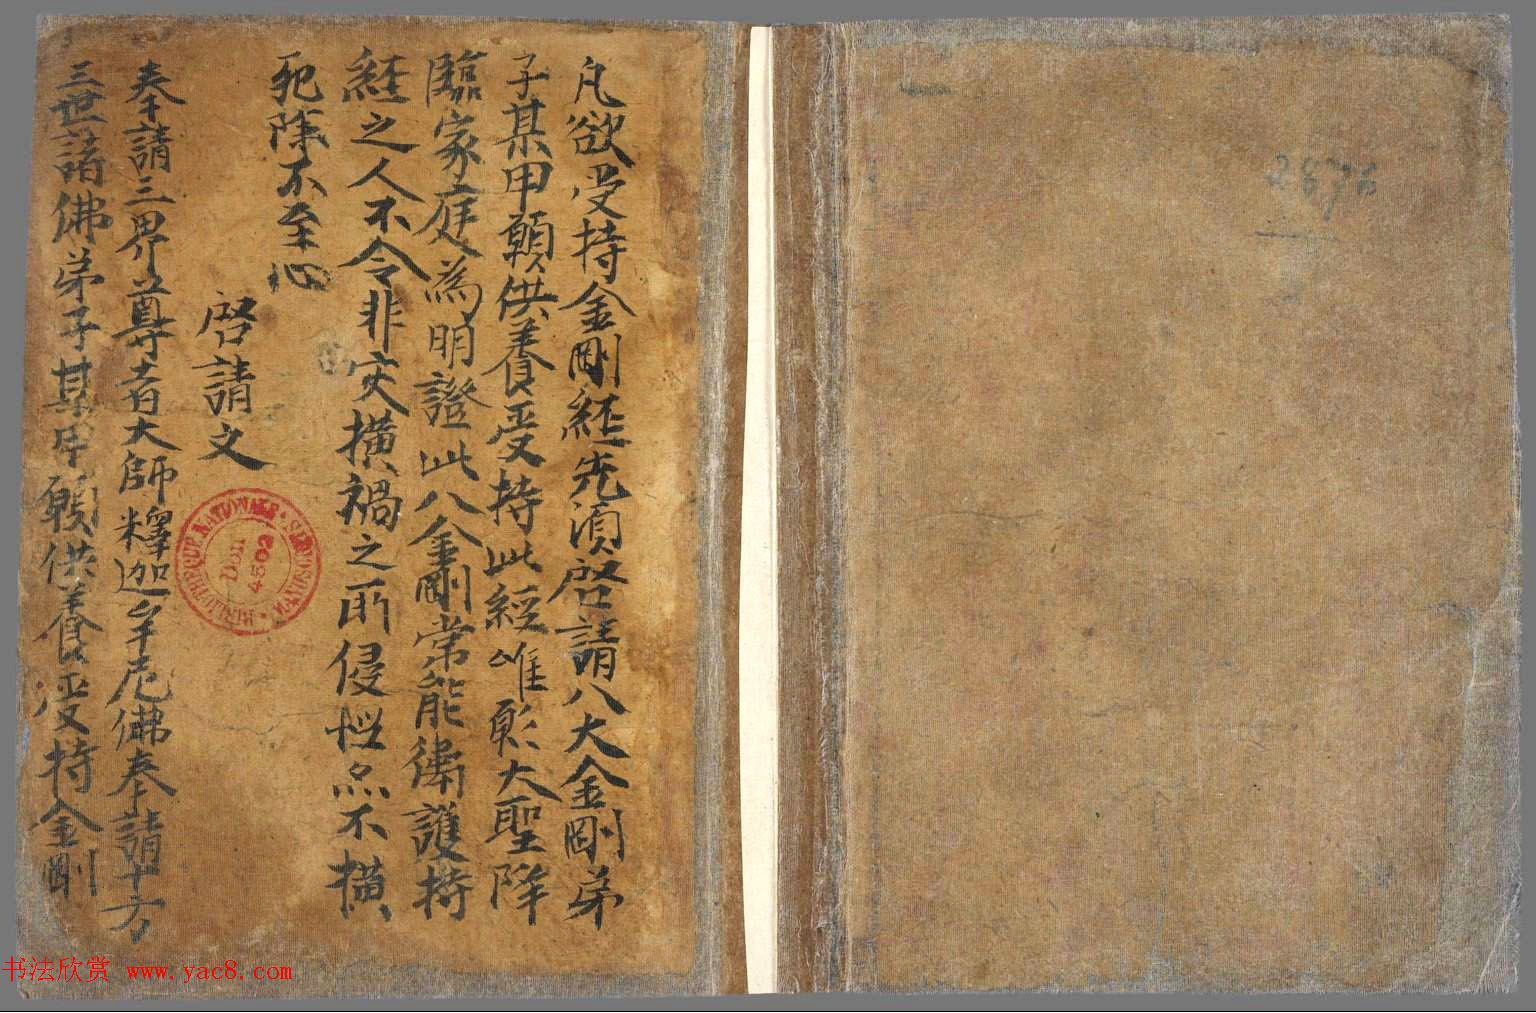 凡欲受持金剛經先湏啓請八大金剛弟
子某甲願供養受持此經唯願大聖降
臨家庭為明證此八金剛常能衛護持
經之人不令非灾橫禍之所侵惱亦不橫
死除不至心
啓請文
奉請三界尊者大師釋迦牟尼佛奉請十方
三世諸佛弟子某甲願供養受持金剛
BIBLIOTHEQUE NATIONALE · MANUSCRITS
Don
4502
2876
书法欣赏 www.yac8.com